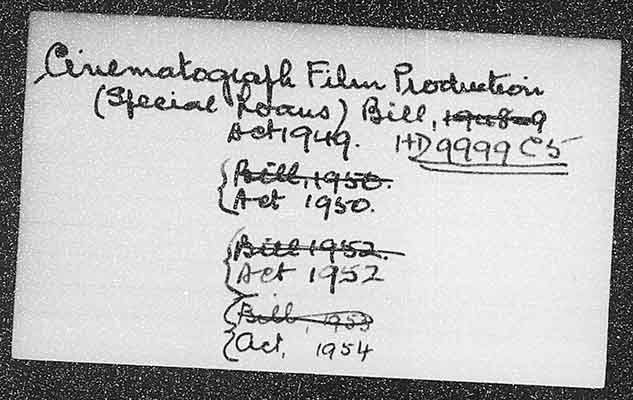 Cinematograph Film Production
(Special Loans) Bill, 1948-9
Act 1949. HD9999C5
Bill, 1950.
Act 1950.
Bill 1952.
Act 1952
Bill, 1953
Act, 1954